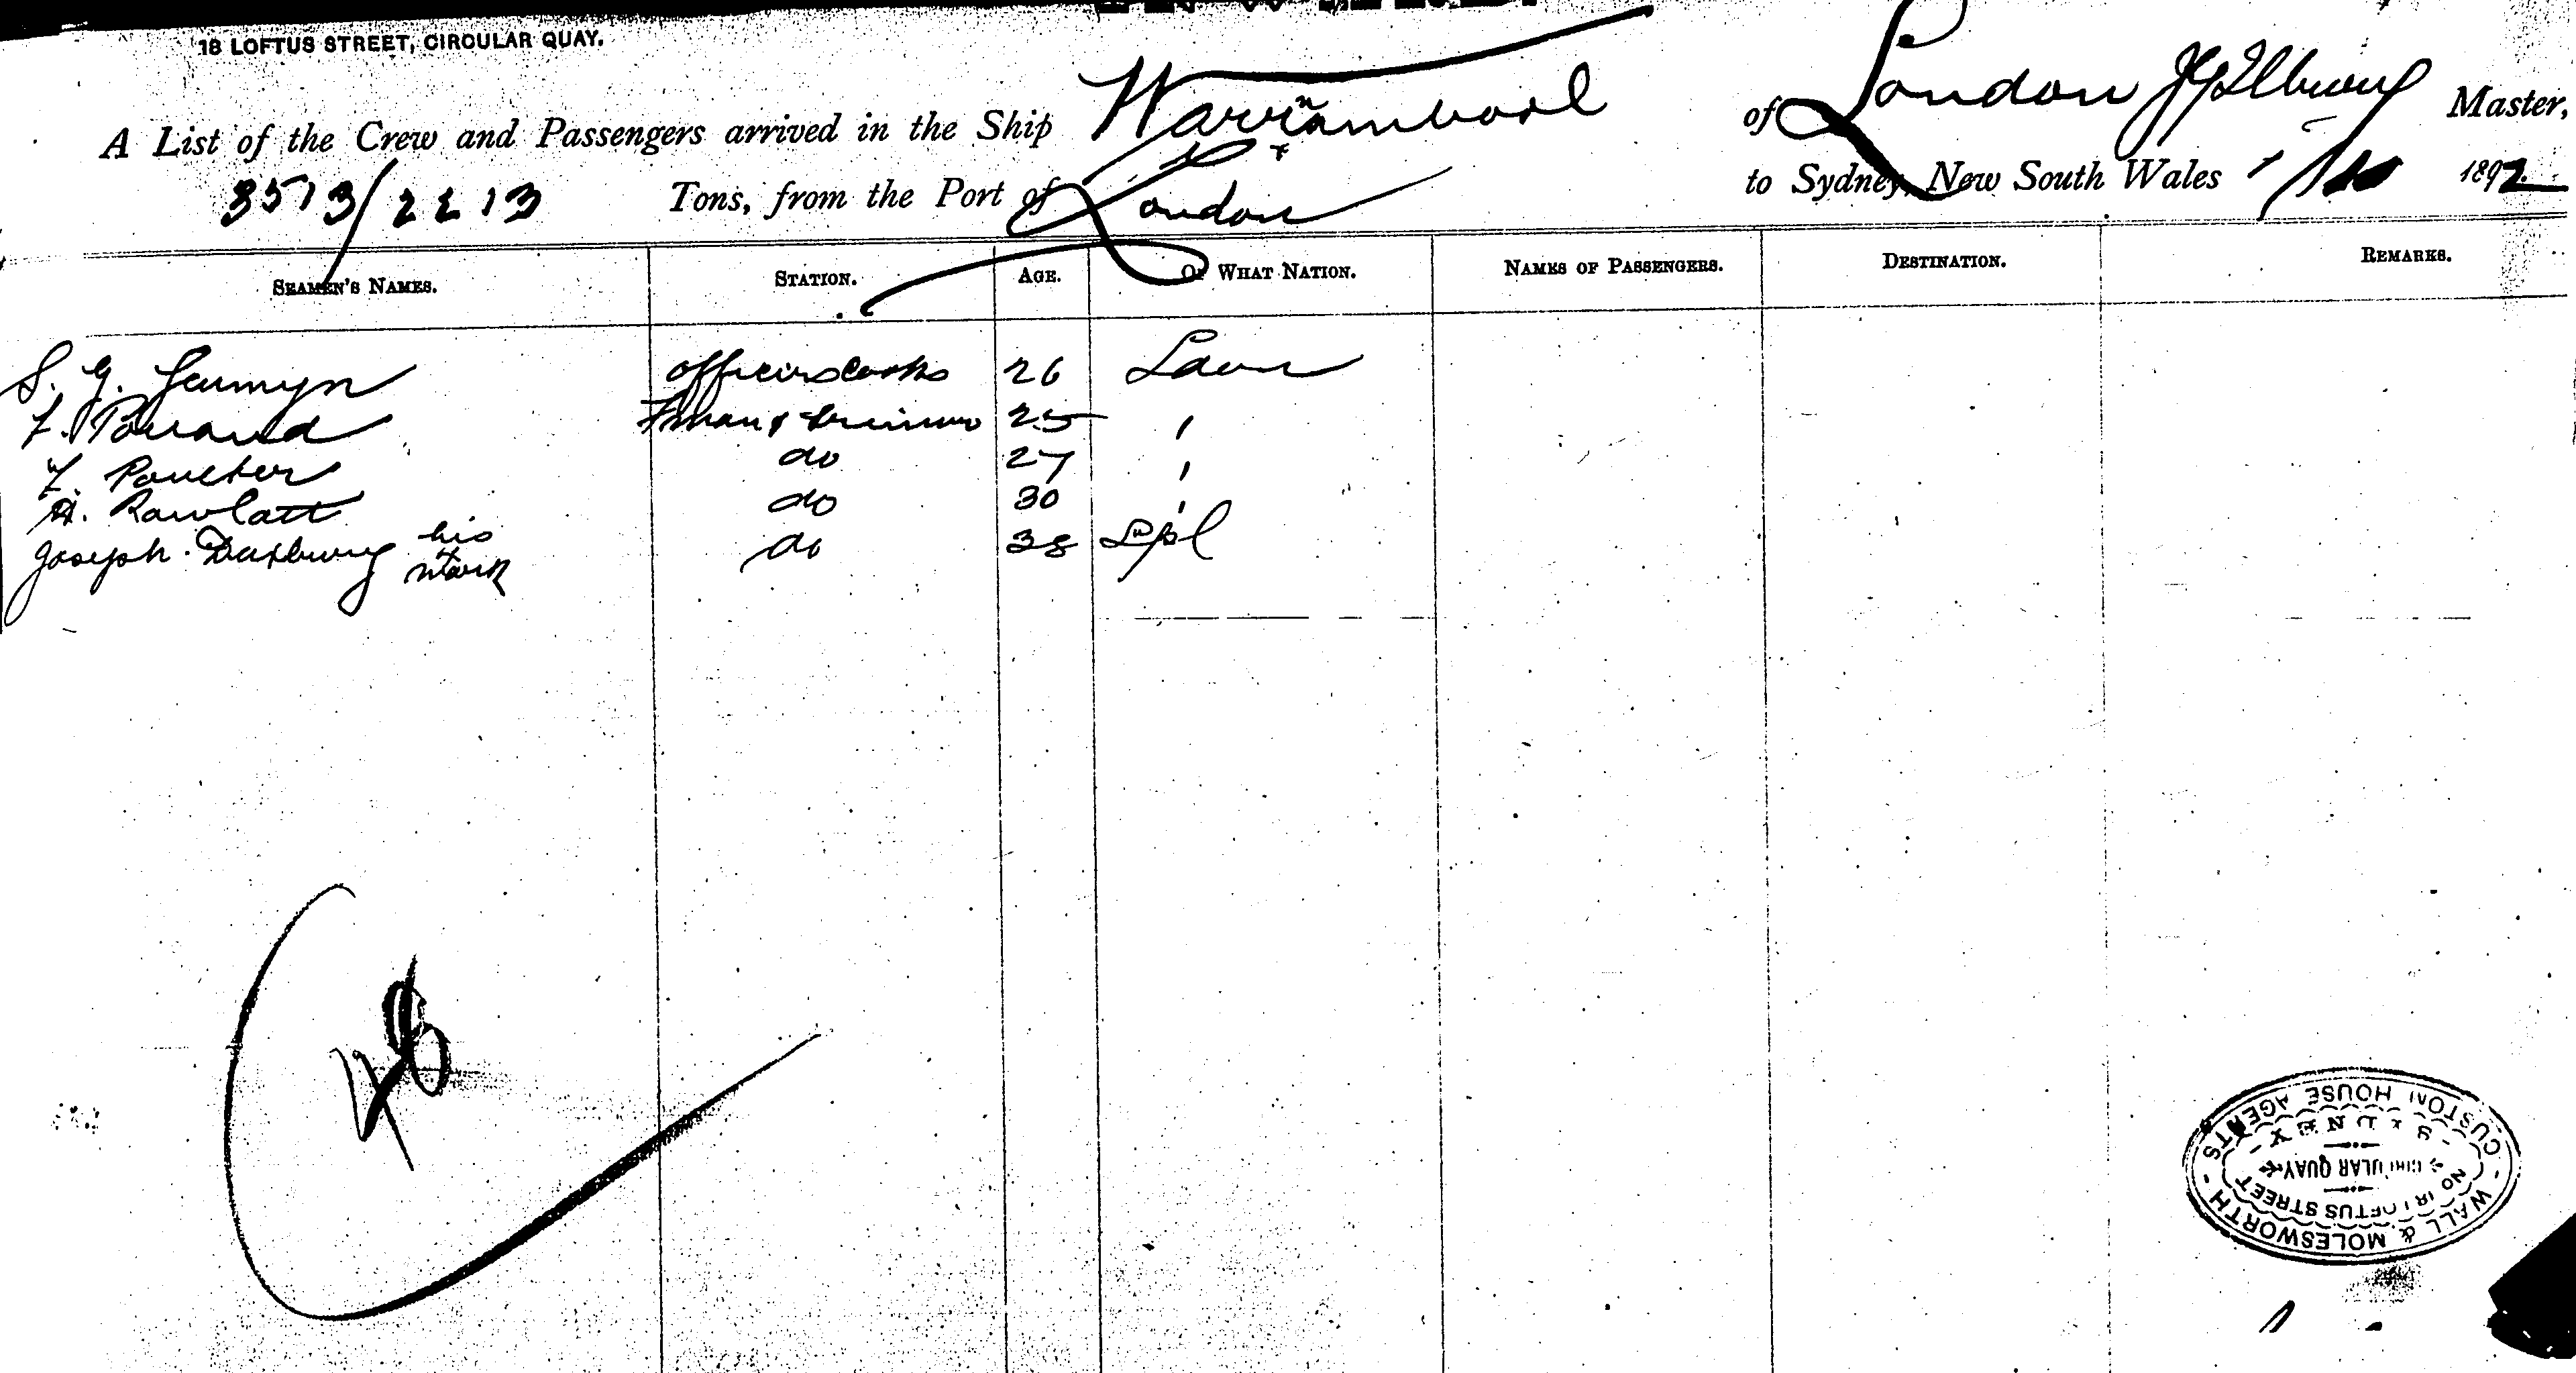 18 LOFTUS STREET, CIRCULAR QUAY.
A List of the Crew and Passengers arrived in the Ship Warrnambool of London Master,
3513/2213 Tons, from the Port of London to Sydney, New South Wales 1/10 1892
SEAMEN'S NAMES. STATION. AGE. OF WHAT NATION. NAMES OF PASSENGERS. DESTINATION. REMARKS.
S. G. Jermyn officers cooks 26
F. 25 "
F. Poulter do 27 "
A. Rowlatt do 30 "
Joseph Duxbury his x mark do 38 Lpl
- WALL & MOLESWORTH -
NO 18 LOFTUS STREET
CIRCULAR QUAY
- SYDNEY -
CUSTOM HOUSE AGENTS